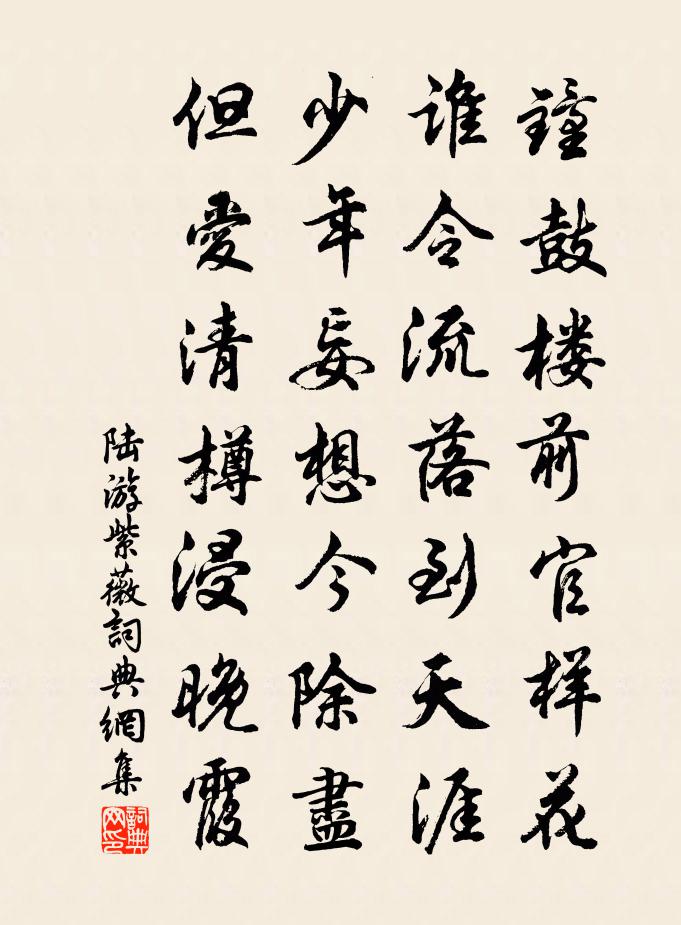 鐘鼓楼前官样花
谁令流落到天涯
少年妄想今除盡
但愛清樽浸晚霞
陆游紫薇詞典網集
詞典网印